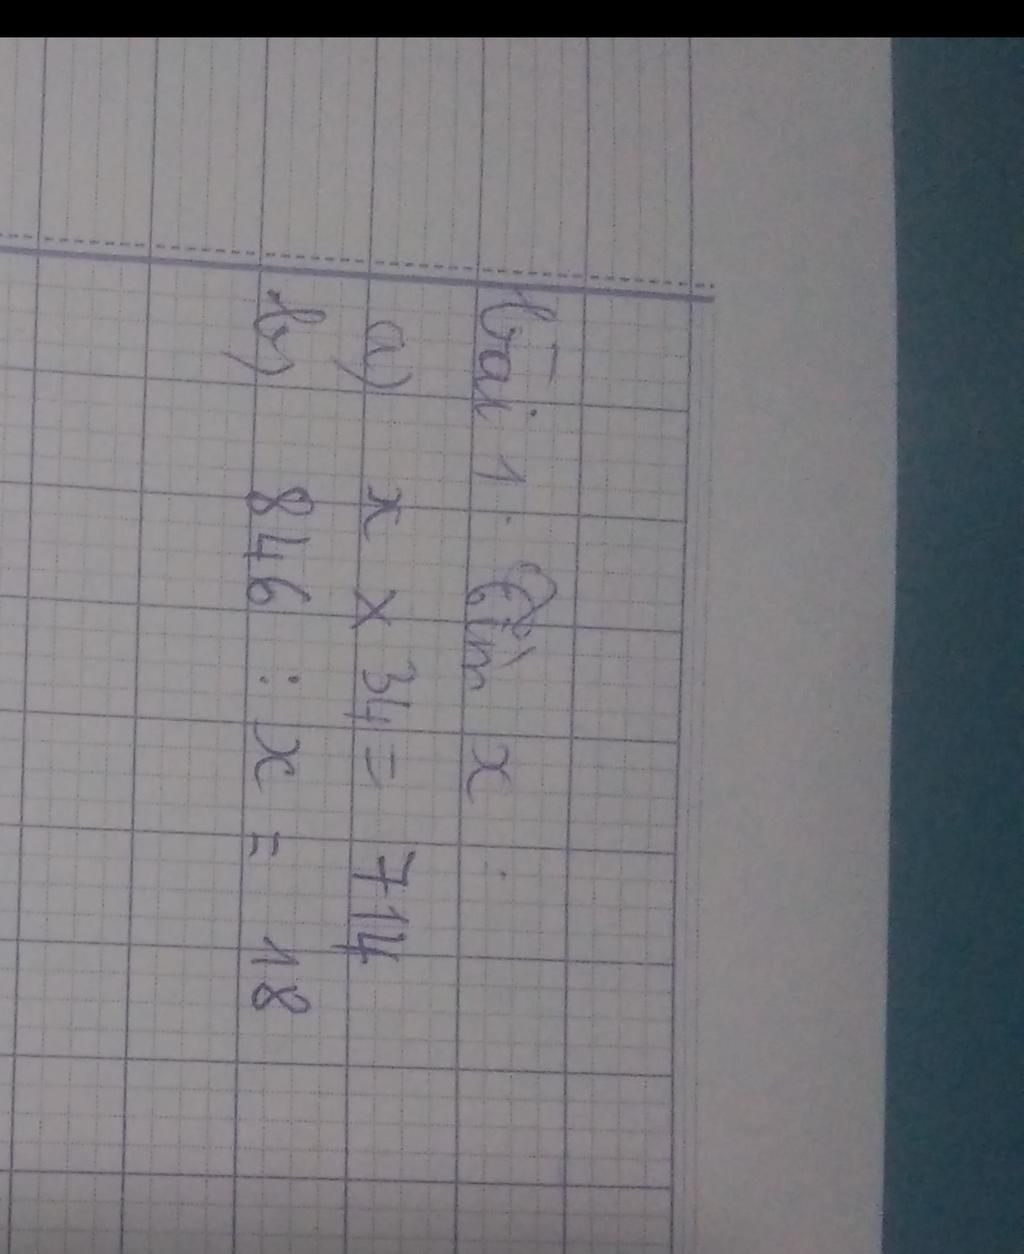 Bài 1. Tìm x :
a) x x 34 = 714
b) 846 : x = 18